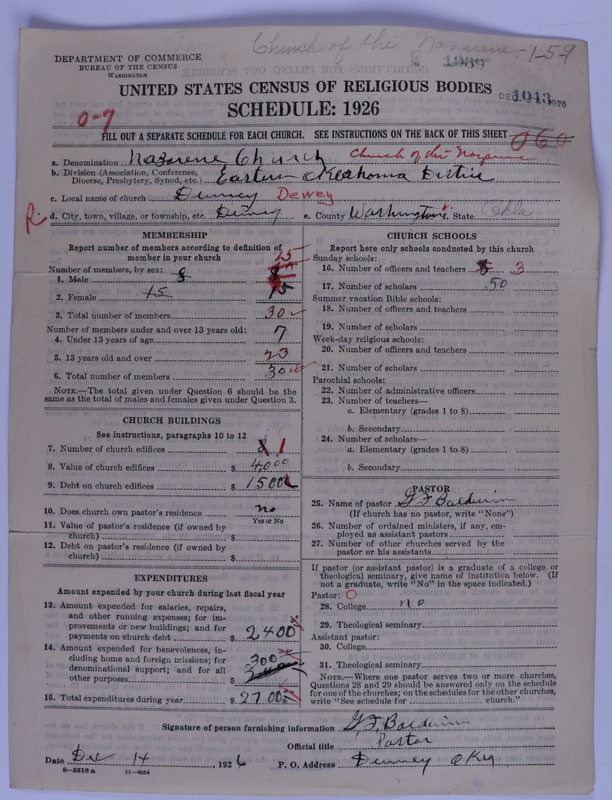 Church of the Nazarene 1-59
1939
DEPARTMENT OF COMMERCE
BUREAU OF THE CENSUS
WASHINGTON
UNITED STATES CENSUS OF RELIGIOUS BODIES
SCHEDULE: 1926
1043
1926
0-7
FILL OUT A SEPARATE SCHEDULE FOR EACH CHURCH. SEE INSTRUCTIONS ON THE BACK OF THIS SHEET
060
a. Denomination Nazarene Church Church of the
b. Division (Association, Conference,
Diocese, Presbytery, Synod, etc.) Eastern Oklahoma
c. Local name of church Dewey
d. City, town, village, or township, etc. e. County Washington State Okla
MEMBERSHIP
Report number of members according to definition of
member in your church
Number of members, by sex:
1. Male 8 15
2. Female 15 15
3. Total number of members 30
Number of members under and over 13 years old:
4. Under 13 years of age 7
5. 13 years old and over 23
6. Total number of members 30
NOTE.—The total given under Question 6 should be the
same as the total of males and females given under Question 3.
CHURCH BUILDINGS
See instructions, paragraphs 10 to 12
7. Number of church edifices 1
8. Value of church edifices $ 4000
9. Debt on church edifices $ 1500
10. Does church own pastor's residence no
Yes or No
11. Value of pastor's residence (if owned by
church) $
12. Debt on pastor's residence (if owned by
church) $
EXPENDITURES
Amount expended by your church during last fiscal year
13. Amount expended for salaries, repairs,
and other running expenses; for im-
provements or new buildings; and for
payments on church debt $ 2400
14. Amount expended for benevolences, in-
cluding home and foreign missions; for
denominational support; and for all
other purposes $ 300
15. Total expenditures during year $ 2700
CHURCH SCHOOLS
Report here only schools conducted by this church
Sunday schools:
16. Number of officers and teachers 3
17. Number of scholars 50
Summer vacation Bible schools:
18. Number of officers and teachers
19. Number of scholars
Week-day religious schools:
20. Number of officers and teachers
21. Number of scholars
Parochial schools:
22. Number of administrative officers
23. Number of teachers—
a. Elementary (grades 1 to 8)
b. Secondary
24. Number of scholars—
a. Elementary (grades 1 to 8)
b. Secondary
PASTOR
25. Name of pastor G F Baldwin
(If church has no pastor, write "None")
26. Number of ordained ministers, if any, em-
ployed as assistant pastors
27. Number of other churches served by the
pastor or his assistants
If pastor (or assistant pastor) is a graduate of a college or
theological seminary, give name of institution below. (If
not a graduate, write "No" in the space indicated.)
Pastor: O
28. College no
29. Theological seminary
Assistant pastor:
30. College
31. Theological seminary
NOTE.—Where one pastor serves two or more churches,
Questions 28 and 29 should be answered only on the schedule
for one of the churches; on the schedules for the other churches,
write "See schedule for church."
Signature of person furnishing information G F Baldwin
Official title Pastor
Date Dec 14, 1926 P. O. Address
8—5518 a 11—9054